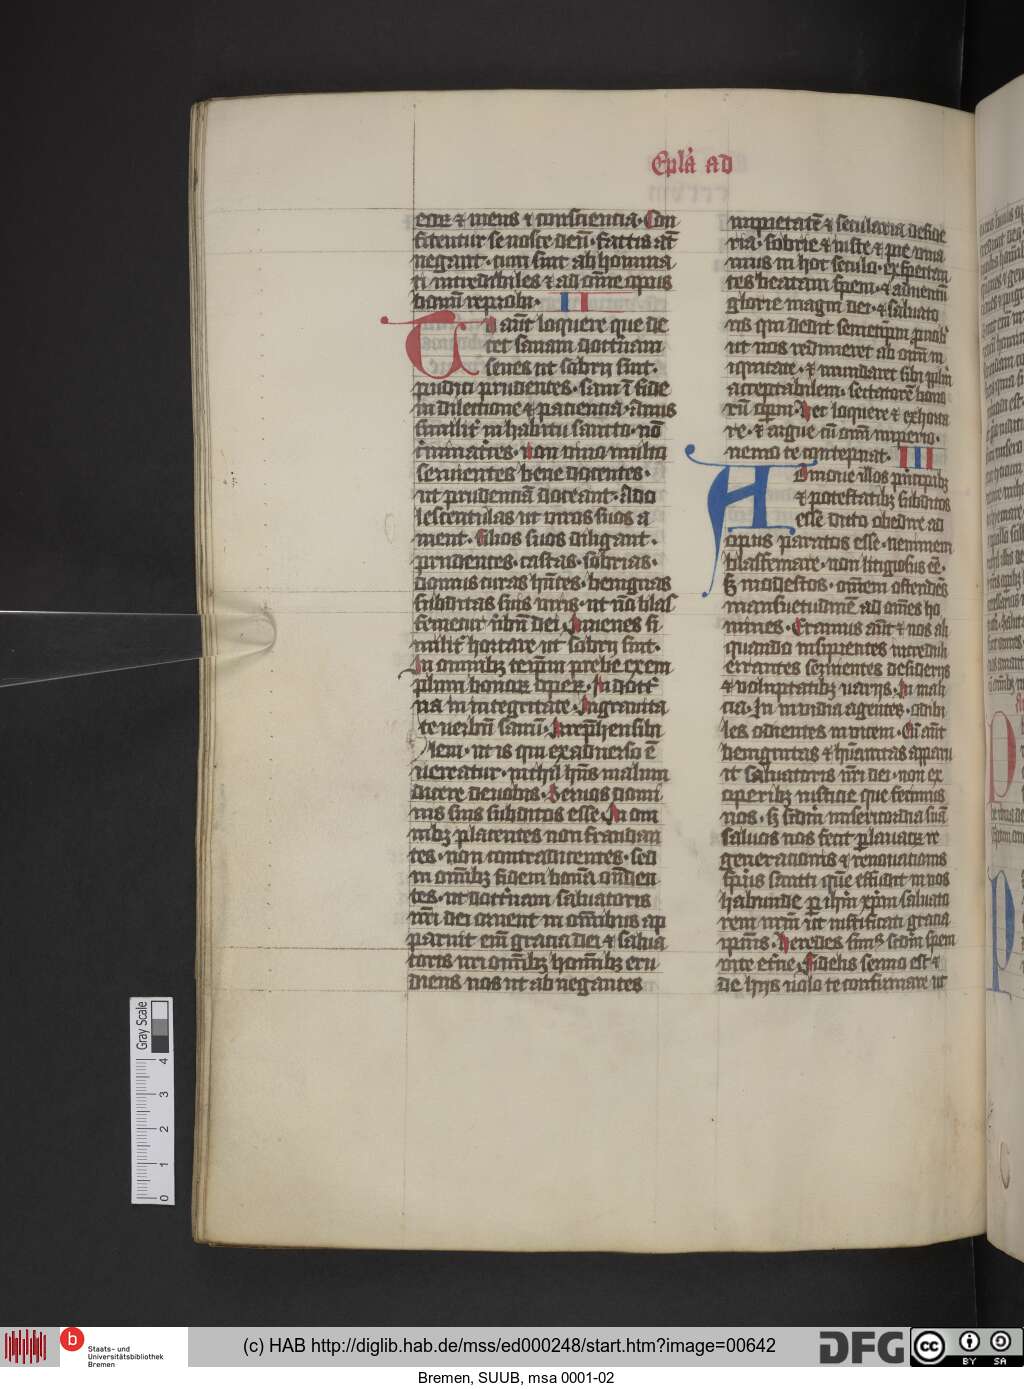 Epl'a ad
eor⁊ ⁊ mens ⁊ consciencia. Con
fitentur se nosce deū. factis aūt
negant. cum sint abhomina
ti incredibiles ⁊ ad omne opus
bonū reprobi. II
Tu aūt loquere que de
cet sanam doctrinam
senes ut sobrii sint.
pudici prudentes. sani ī fide
in dilectione ⁊ paciencia. anus
similit' in habitu sancto. nō
c'minatrices. non vino multo
seruientes bene docentes.
ut prudenciā doceant. Ado
lescentulas ut viros suos a
ment. filios suos diligant.
prudentes. castas. sobrias.
domus curas hn̄tes. benignas
subditas suis viris. ut nō blas
femetur ūbm̄ dei. Iuuenes si
milit' hortare ut sobrii sint.
In omnibꝫ teip̄m prebe exem
plum bonorꝝ operꝝ. In doct'
na in integritate. In grauita
te uerbū sanū. Irrep̄hensibi
lem. ut is qui exaduerso ē
uereatur. nichil hn̄s malum
dicere de uobis. Seruos domi
nis suis subditos esse. In om
nibꝫ placentes non fraudan
tes. non contradicentes. sed
in om̄ibꝫ fidem bonā on̄den
tes. ut doct'nam saluatoris
nr̄i dei ornent in om̄ibus ap
paruit eni gracia dei ⁊ saluа
toris nri om̄ibꝫ hom̄ibꝫ eru
diens nos ut abnegantes
impietatē ⁊ secularia deside
ria. sobrie ⁊ iuste ⁊ pie viua
mus in hoc seculo. expectan
tes beatam spem. ⁊ aduentū
glorie magni dei. ⁊ saluato
ris qui dedit semetip̄m pro nob'
ut nos redimeret ab om̄i in
iquitate. ⁊ mundaret sibi pplm̄
acceptabilem. sectatorē bono
rū op̄m. Hec loquere ⁊ exhorta
re. ⁊ argue cū om̄i imperio.
nemo te contēpnat. III
Admone illos principibꝫ
⁊ potestatibꝫ subditos
esse dicto obedire ad
opus paratos esse. neminem
blasfemare. non litigiosus ēē.
sꝫ modestos. om̄em ostendēs
mansuetudinē ad om̄es ho
mines. Eramus aūt ⁊ nos ali
quando insipientes increduli
errantes seruientes desideriis
⁊ voluptatibꝫ uariis. In mali
cia. In inuidia agentes. odibi
les odientes inuicem. Cū aūt
benignitas ⁊ hūanitas apparu
it saluatoris nr̄i dei. non ex
operibꝫ iusticie que fecimus
nos. sꝫ scd'm misericordia suā
saluos nos fecit p̱ lauacrꝝ re
generationis ⁊ renouationis
sp̄us sancti quē effudit in nos
habunde p̱ ihm̄ xp̄m saluato
rem nrm̄ ut iustificati gracia
ipius. heredes sim⁹ scd'm spem
vite et'ne. Fidelis sermo est ⁊
de hiis uolo te confirmare ut
Gray Scale
0 1 2 3 4
Staats- und
Universitätsbibliothek
Bremen
(c) HAB http://diglib.hab.de/mss/ed000248/start.htm?image=00642
DFG
cc BY SA
Bremen, SUUB, msa 0001-02